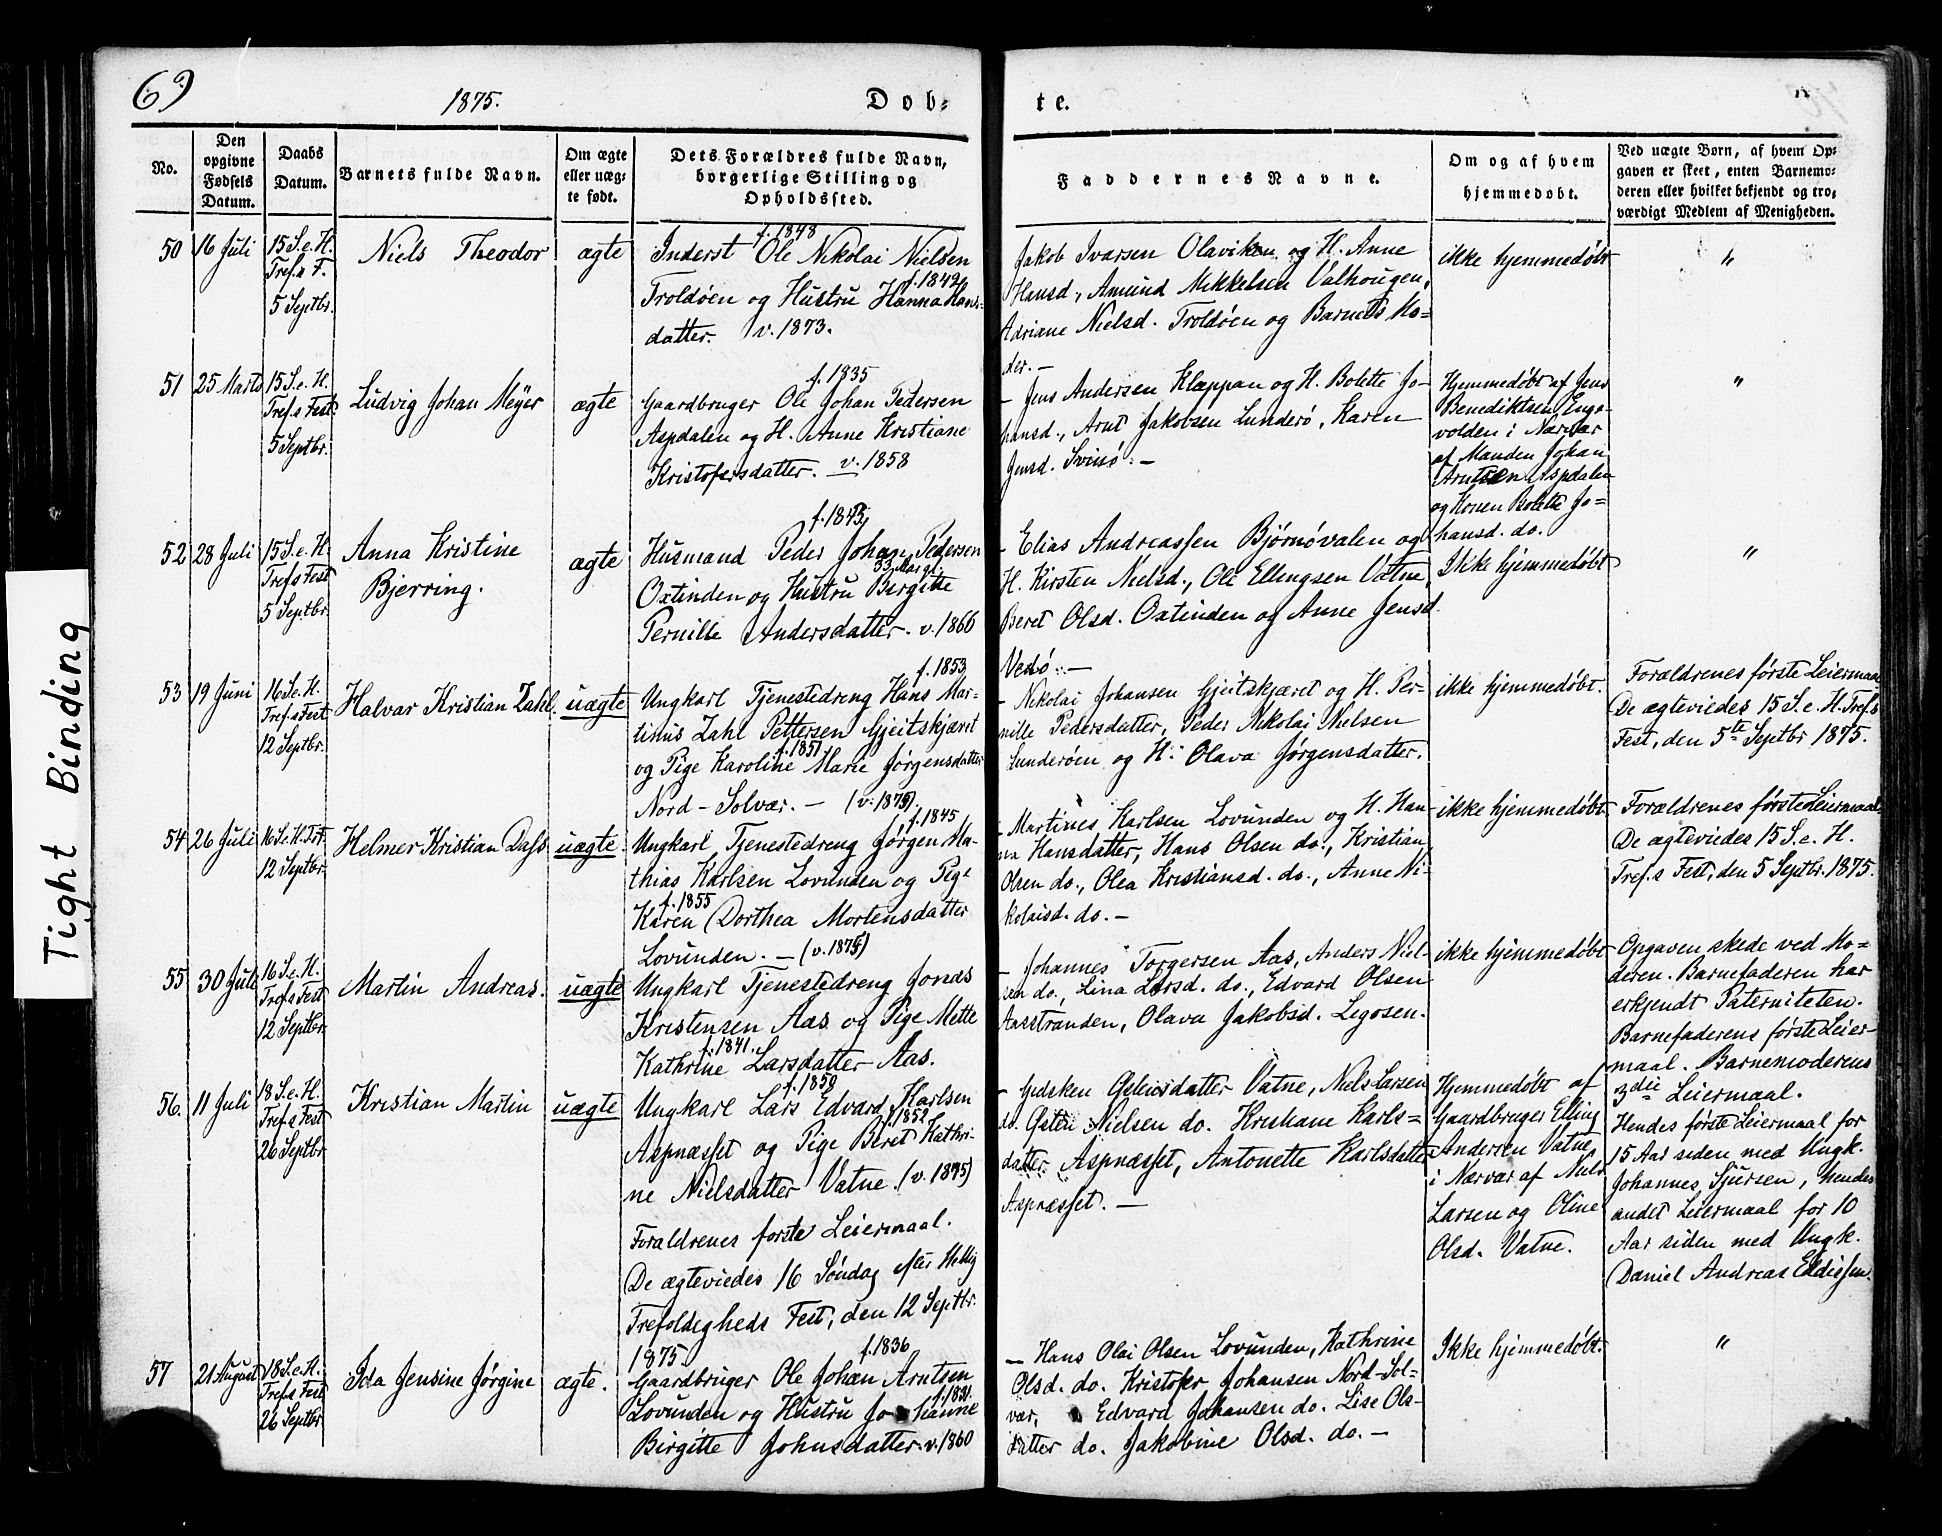 69
1875.
Dob-
te.
Tight Binding
No.
Den
opgivne
Fødsels
Datum.
Daabs
Datum.
Barnets fulde Navn.
Om ægte
eller uæg-
te født.
Dets Forældres fulde Navn,
borgerlige Stilling og
Opholdssted.
Faddernes Navne.
Om og af hvem
hjemmedøbt.
Ved uægte Børn, af hvem Op-
gaven er skeet, enten Barnemo-
deren eller hvilket bekjendt og tro-
værdigt Medlem af Menigheden.
50
16 Juli
15 S. e. H.
Tref.s F.
5 Septbr.
Niels Theodor
ægte
f. 1848
Inderst Ole Nikolai Nielsen
f. 1842
Troldøen og Hustru Hanna Hans-
datter. v. 1873.
Jakob Ivarsen Olaviken og H. Anne
Hansd., Amund Mikkelsen Valhougen,
Adriane Nielsd. Troldøen og Barnets Mo-
der. -
ikke hjemmedøbt
"
51
25 Marts
15 S. e. H.
Tref.s Fest
5 Septbr.
Ludvig Johan Meyer
ægte
f. 1835
Gaardbruger Ole Johan Pedersen
Aspdalen og H. Anne Kristiane
Kristofersdatter. v. 1858
- Jens Andersen Klæppan og H. Bolette Jo-
hansd., Arnt Jakobsen Lunderø, Karen
Jensd. Svinø. -
Hjemmedøbt af Jens
Benediktsen Enge-
volden i Nærvær
af Manden Johan
Arntsen Aspdalen
og Konen Bolette Jo-
hansd. do.
"
52
28 Juli
15 S. e. H.
Tref.s Fest
5 Septbr.
Anna Kristine
Bjerring.
ægte
Husmand Peder Johan Pedersen
Oxtinden og Hustru Birgitte
Pernille Andersdatter. v. 1866
- Elias Andreassen Bjørnøvalen og
H. Kirsten Nielsd., Ole Ellingsen Vatne,
Beret Olsd. Oxtinden og Anne Jensd.
Vedø. -
Ikke hjemmedøbt
"
53
19 Juni
16 S. e. H.
Tref.s Fest
12 Septbr.
Halvar Kristian Zahl.
uægte
f. 1853
Ungkarl Tjenestedreng Hans Mar-
tinus Zahl Pettersen Gjeitskjæret
f. 1851
og Pige Karoline Marie Jørgensdatter
Nord-Solvær. - (v. 1875).
- Nikolai Johansen Gjeitskjæret og H. Per-
nille Pedersdatter, Peder Nikolai Nielsen
Lunderøen og H. Olava Jørgensdatter.
ikke hjemmedøbt.
Forældrenes første Leiermaal
De ægteviedes 15 S. e. H. Tref.s
Fest, den 5te Septbr 1875.
54
26 Juli
16 S. e. H. Tr.f.
12 Septbr.
Helmer Kristian Dass
uægte
f. 1845
Ungkarl Tjenestedreng Jørgen Ma-
thias Karlsen Lovunden og Pige
f. 1855
Karen Dorthea Mortensdatter
Lovunden. - (v. 1875)
- Martines Karlsen Lovunden og H. Han-
na Hansdatter, Hans Olsen do., Kristian
Olsen do., Olea Kristiansd. do., Anne Ni-
kolaisd. do. -
ikke hjemmedøbt
Forældrenes første Leiermaal
De ægteviedes 15 S. e. H.
Tref.s Fest, den 5 Septbr. 1875.
55
30 Juli
16 S. e. H.
Tref.s Fest
12 Septbr.
Martin Andreas.
uægte
Ungkarl Tjenestedreng Jonas
Kristensen Aas og Pige Mette
f. 1841.
Kathrine Larsdatter Aas.
- Johannes Torgersen Aas, Anders Niel-
sen do., Lina Larsd. do., Edvard Olsen
Aasstranden, Olava Jakobsd. Legosen.
ikke hjemmedøbt
Opgaven skede ved Mo-
deren. Barnefaderen har
erkjendt Paterniteten.
Barnefaderens første Leier-
maal. Barnemoderens
3die Leiermaal.
Hendes første Leiermaal for
15 Aar siden med Ungk.
Johannes Sjursen, hendes
andet Leiermaal for 10
Aar siden med Ungk.
Daniel Andreas Eldissen.
56.
11 Juli
18 S. e. H.
Tref.s Fest
26 Septbr.
Kristian Martin
uægte
f. 1850
Ungkarl Lars Edvard Karlsen
f. 1852
Aspnæsset og Pige Beret Kathri-
ne Nielsdatter Vatne. (v. 1875)
Forældrenes første Leiermaal.
De ægteviedes 16 Søndag efter Hellig
Trefoldigheds Fest, den 12 Septbr.
1875.
- Gidsken Østensdatter Vatne, Niels Larsen
do. Østen Nielsen do. Kristiane Karls-
datter Aspnæsset, Antonette Karlsdatter
Aspnæsset. -
Hjemmedøbt af
Gaardbruger Elling
Andersen Vatne
i Nærvær af Niels
Larsen og Oline
Olsd. Vatne.
57
21 August
18 S. e. H.
Tref.s Fest
26 Septbr.
Ida Jensine Jørgine
ægte.
f. 1836
Gaardbruger Ole Johan Arntsen
f. 1831.
Lovunden og Hustru Johanne
Birgitte Johnsdatter. v. 1860
- Hans Olai Olsen Lovunden, Kathrine
Olsd. do. Kristofer Johansen Nord-Sol-
vær, Edvard Johansen do. Lise Ols-
datter do. Jakobine Olsd. do. -
Ikke hjemmedøbt.
"